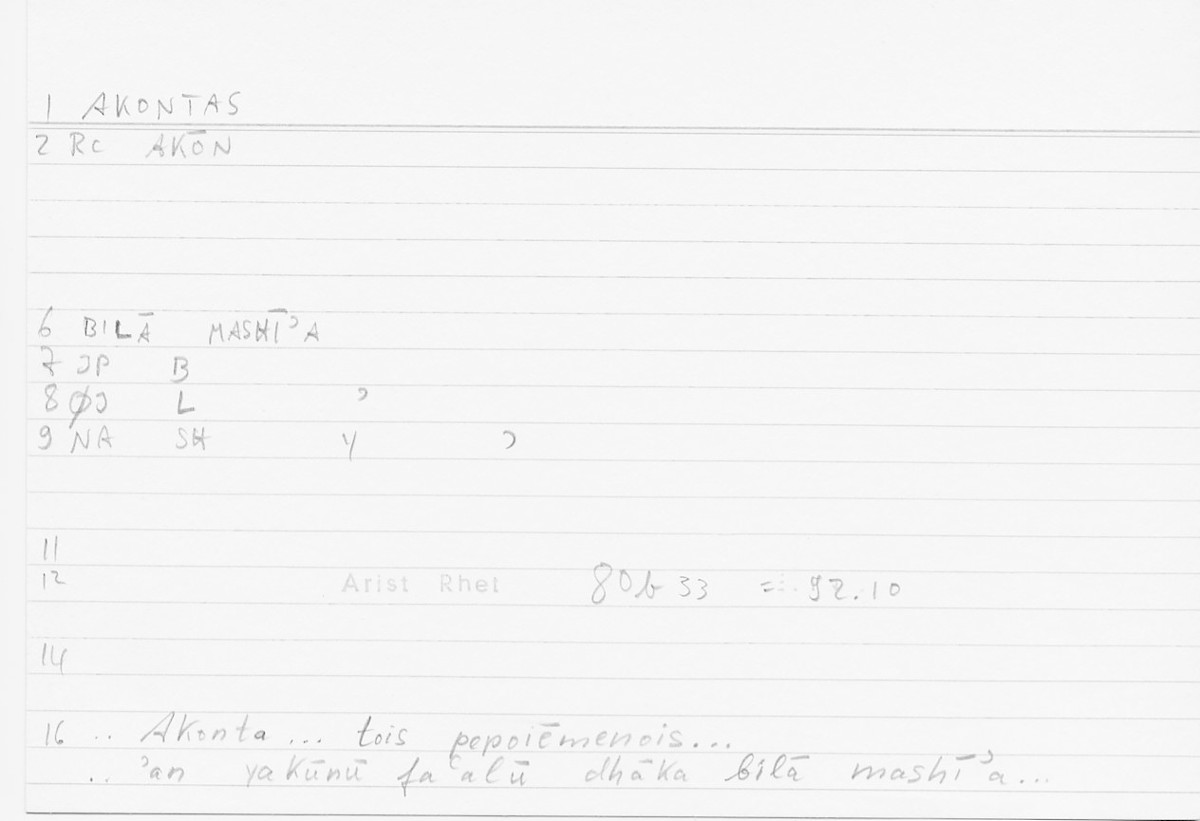 1 AKONTAS
2 Rc AKŌN
6 BILĀ MASHĪʾA
7 JP B
8 ØJ L ʾ
9 NA SH Y ʾ
11
12 Arist Rhet 80b 33 = 92.10
14
16 .. Akonta... tois pepoiēmenois...
.. ʾan yakūnū faʿalū dhāka bilā mashīʾa...